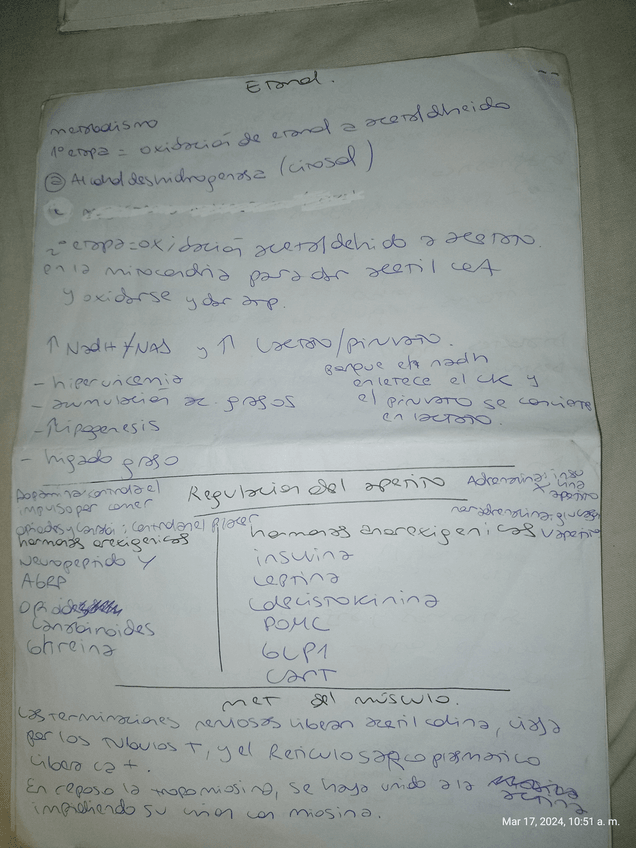 Etanol.
metabolismo
1º etapa = oxidación de etanol a acetaldheido
@ Alcohol deshidrogenasa (citosol)
2º etapa = oxidación acetaldehido a acetato.
en la mitocondria para dar acetil coA
y oxidarse y dar atp.
↑ Nadh/NAD y ↑ Lactato/piruvato.
porque el nadh
- hiperuricemia
enletece el CK y
- acumulación ac. grasos
el piruvato se convierte
en lactato.
- lipogenesis
- higado graso
Regulacion del apetito
Dopamina controla el
impulso por comer
Adrenalina: insu
apetito
noradrenalina: glucosa
apetito
controla el placer
hormonas orexigenicas
hormonas anorexigenicas
Neuropeptido Y
insulina
AGRP
Leptina
Opioides
Colecistokinina
Canabinoides
POMC
Ghreina
GLP1
CART
met del músculo.
Las terminaciones nerviosas liberan acetil colina, viaja
por los tubulos T, y el Reticulo sarcoplasmatico
libera ca+.
En reposo la tropomiosina, se haya unido a la actina
impidiendo su union con miosina.
Mar 17, 2024, 10:51 a. m.